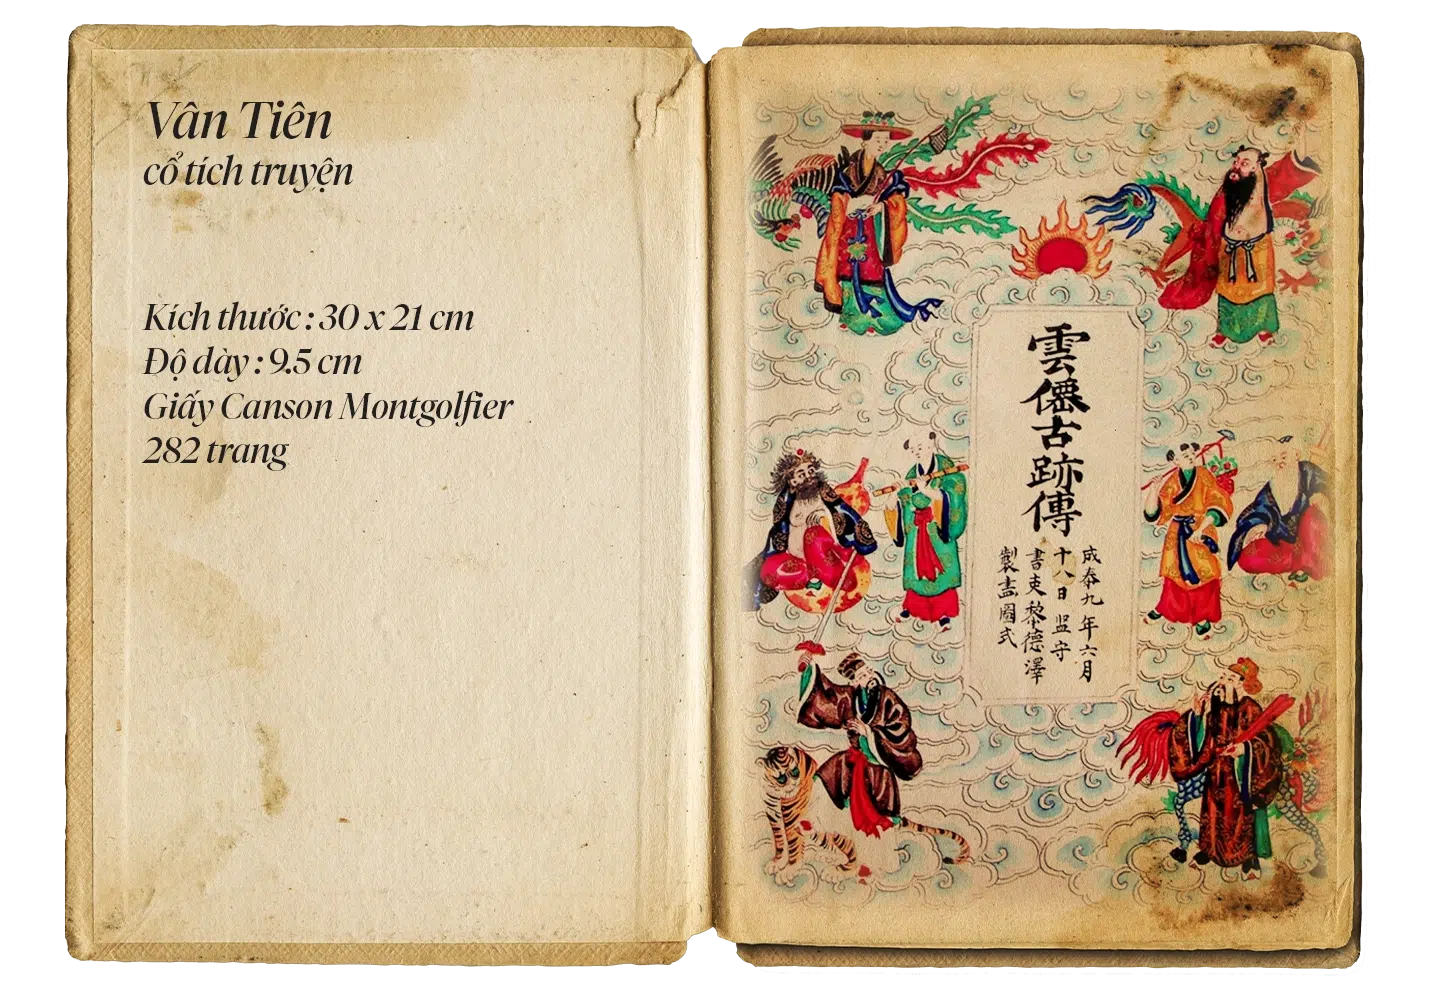 Vân Tiên
cổ tích truyện
Kích thước : 30 x 21 cm
Độ dày : 9.5 cm
Giấy Canson Montgolfier
282 trang
雲僊古跡傳
成泰九年六月
十八日監守
書吏黎德澤
製畵圖式